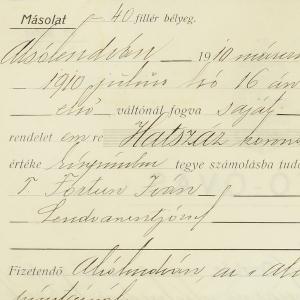 Másolat 40 fillér bélyeg.
Alsólendván 1910
1910 július hó 16 án
első váltónál fogva saját
rendelet emre Hatszáz korona
értéke készpénzben tegye számolásba
T Iván
Lendvaszentjózsef
Fizetendő Alsólendván, az